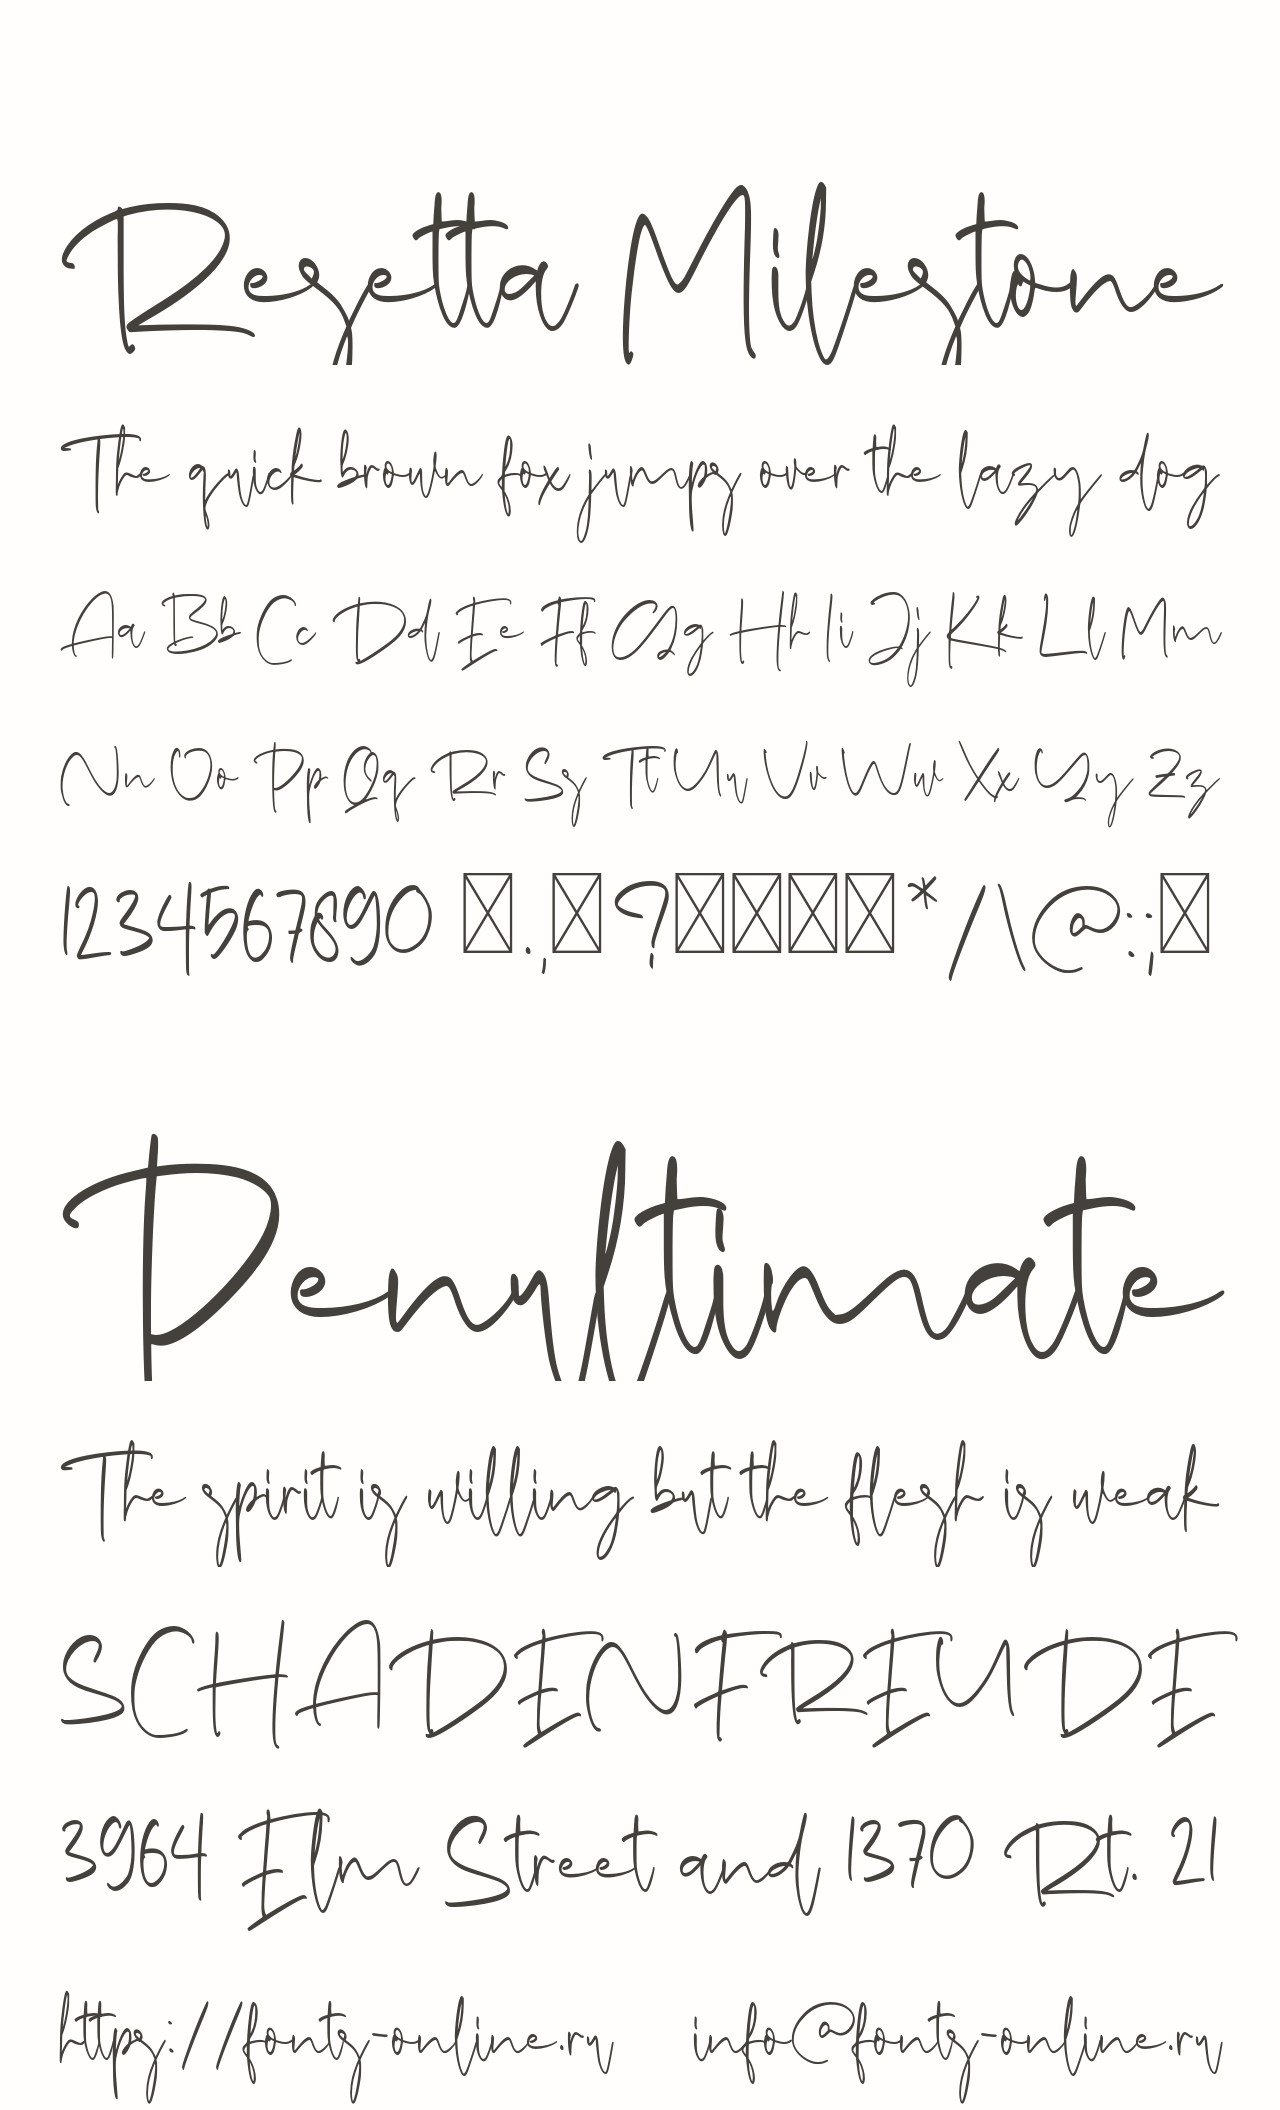 Resetta Milestone
The quick brown fox jumps over the lazy dog
Aa Bb Cc Dd Ee Ff Gg Hh Ii Jj Kk Ll Mm
Nn Oo Pp Qq Rr Ss Tt Uu Vv Ww Xx Yy Zz
1234567890 .,?*/\@:;
Penultimate
The spirit is willing but the flesh is weak
SCHADENFREUDE
3964 Elm Street and 1370 Rt. 21
https://fonts-online.ru info@fonts-online.ru